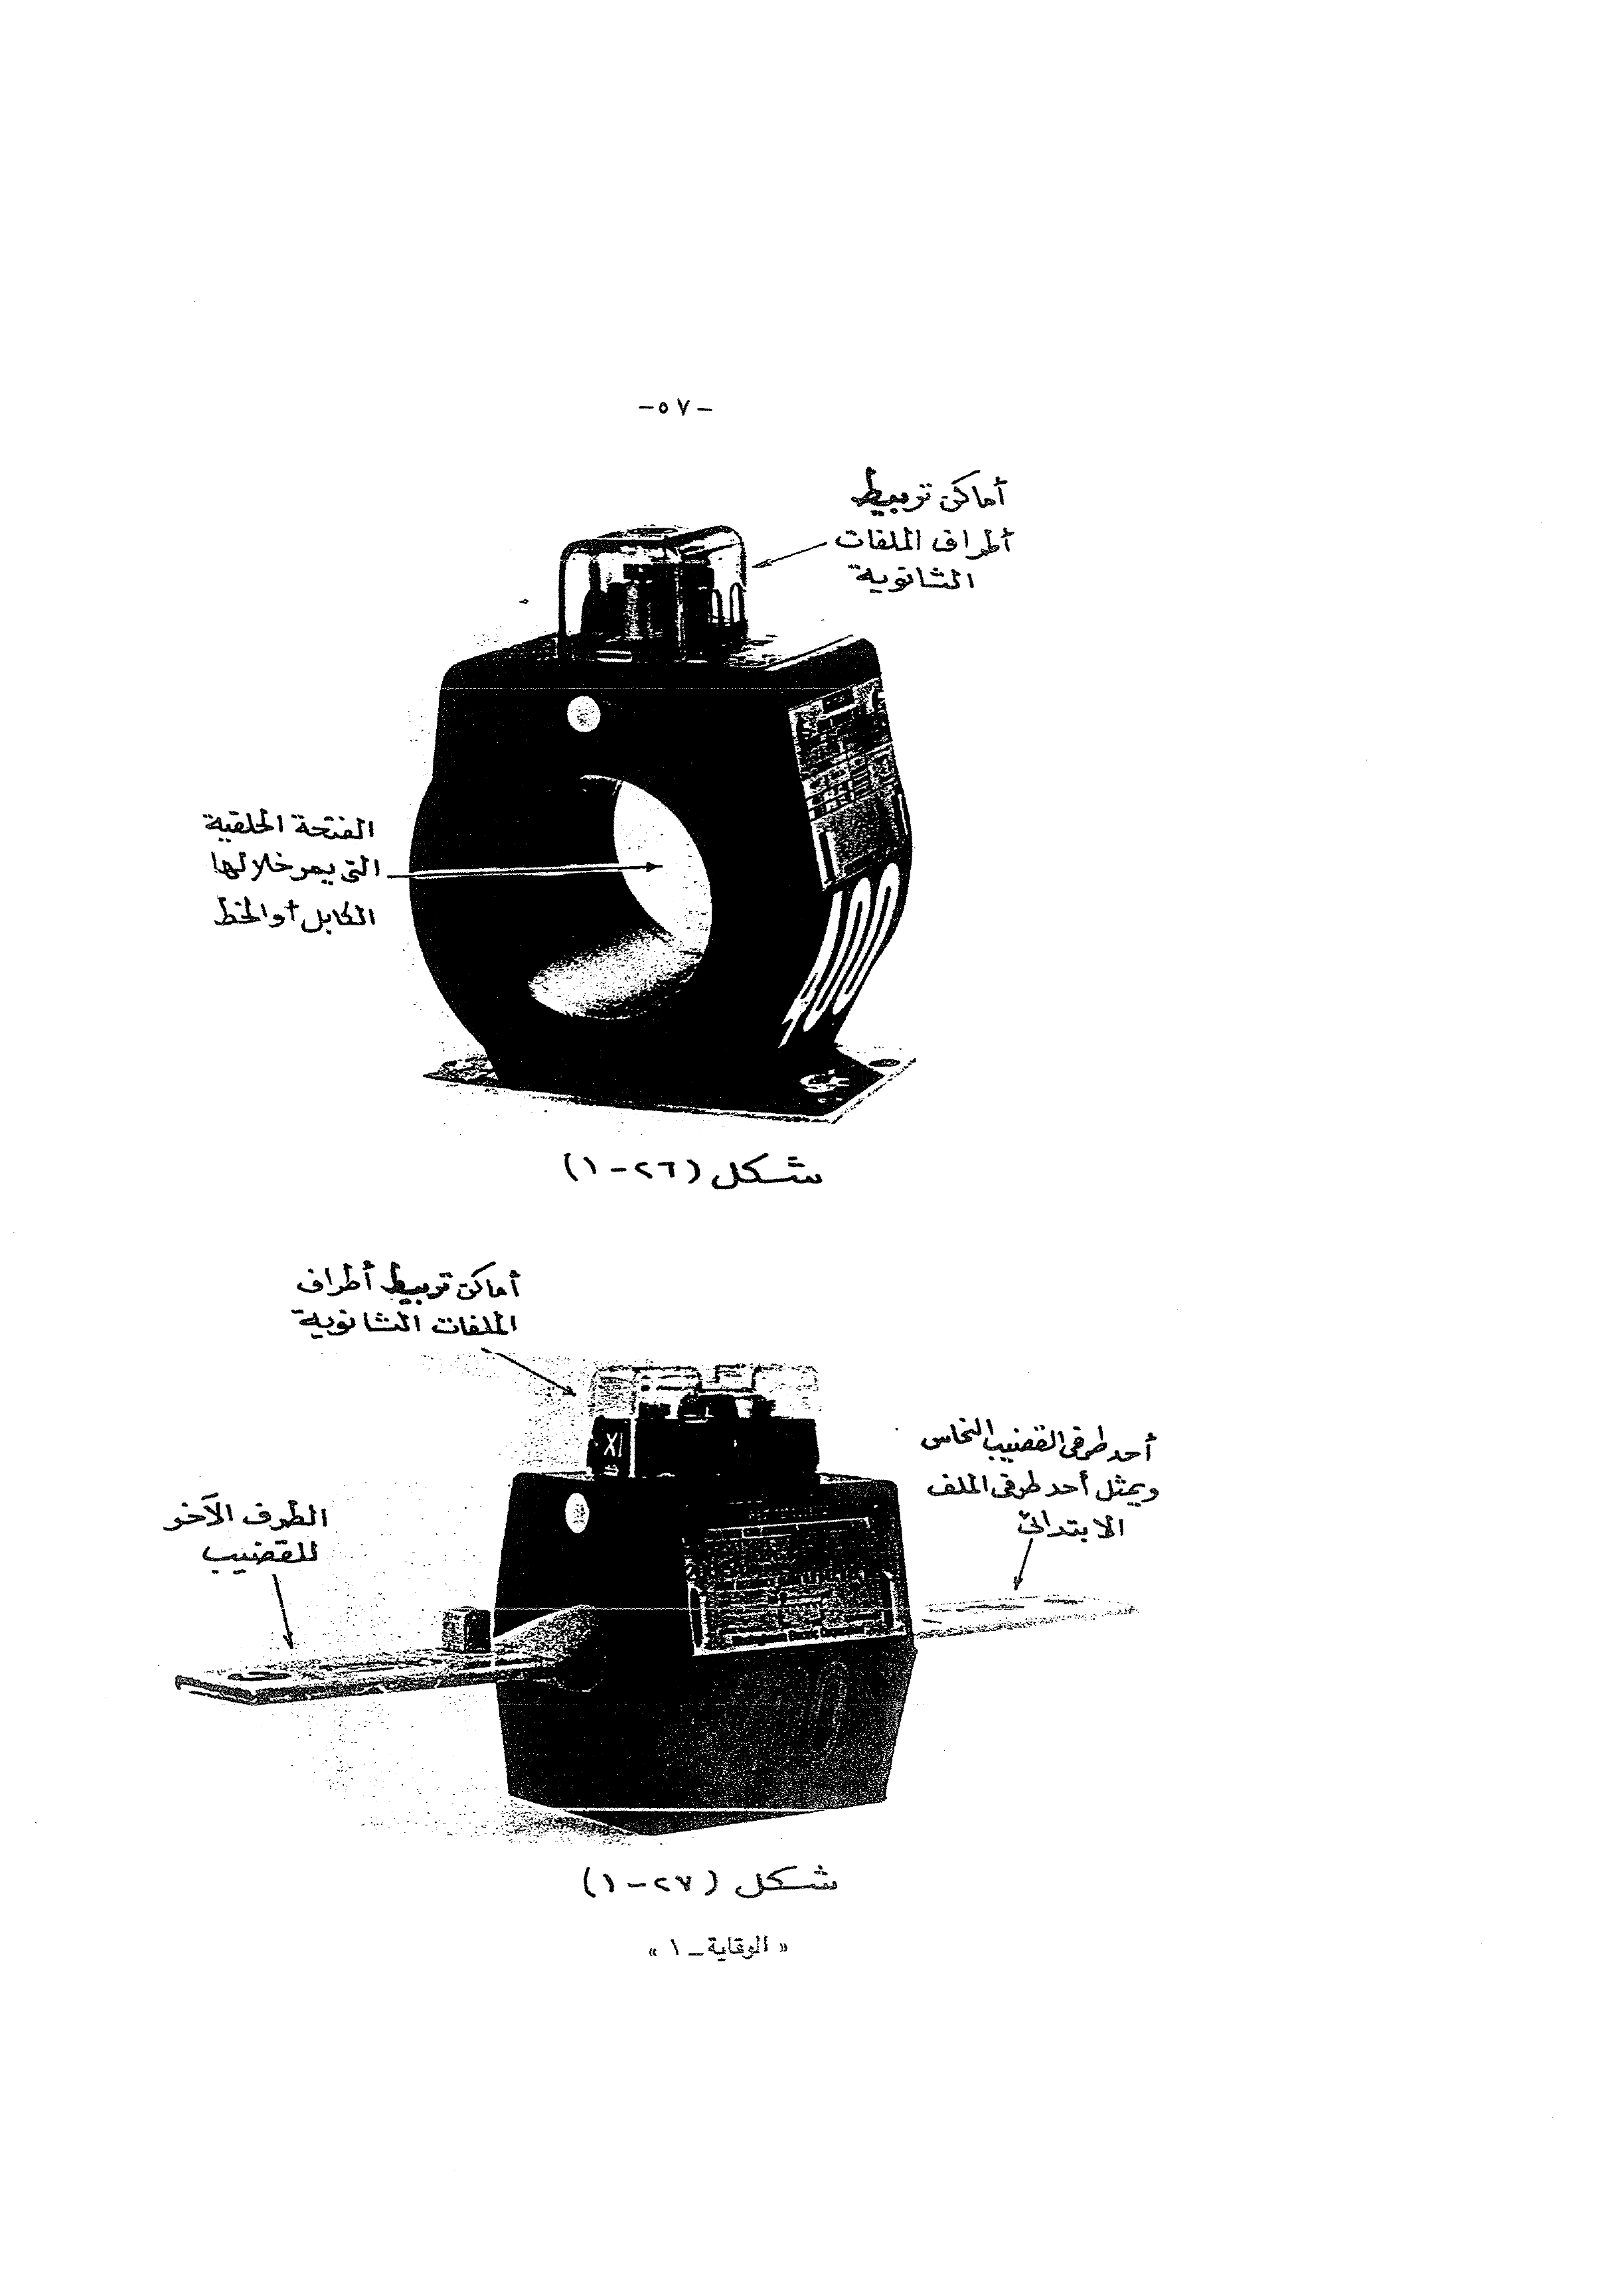 -٥٧-
أماكن تربيط
أطراف الملفات
الثانوية
الفتحة الحلقية
التى يمر خلالها
الكابل أو الخط
شكل (٢٦-١)
أماكن تربيط أطراف
الملفات الثانوية
أحد طرفى القضيب النحاس
ويمثل أحد طرفى الملف
الابتدائى
الطرف الآخر
للقضيب
X1
Westinghouse Electric Corporation
شكل (٢٧-١)
« الوقاية - ١ »